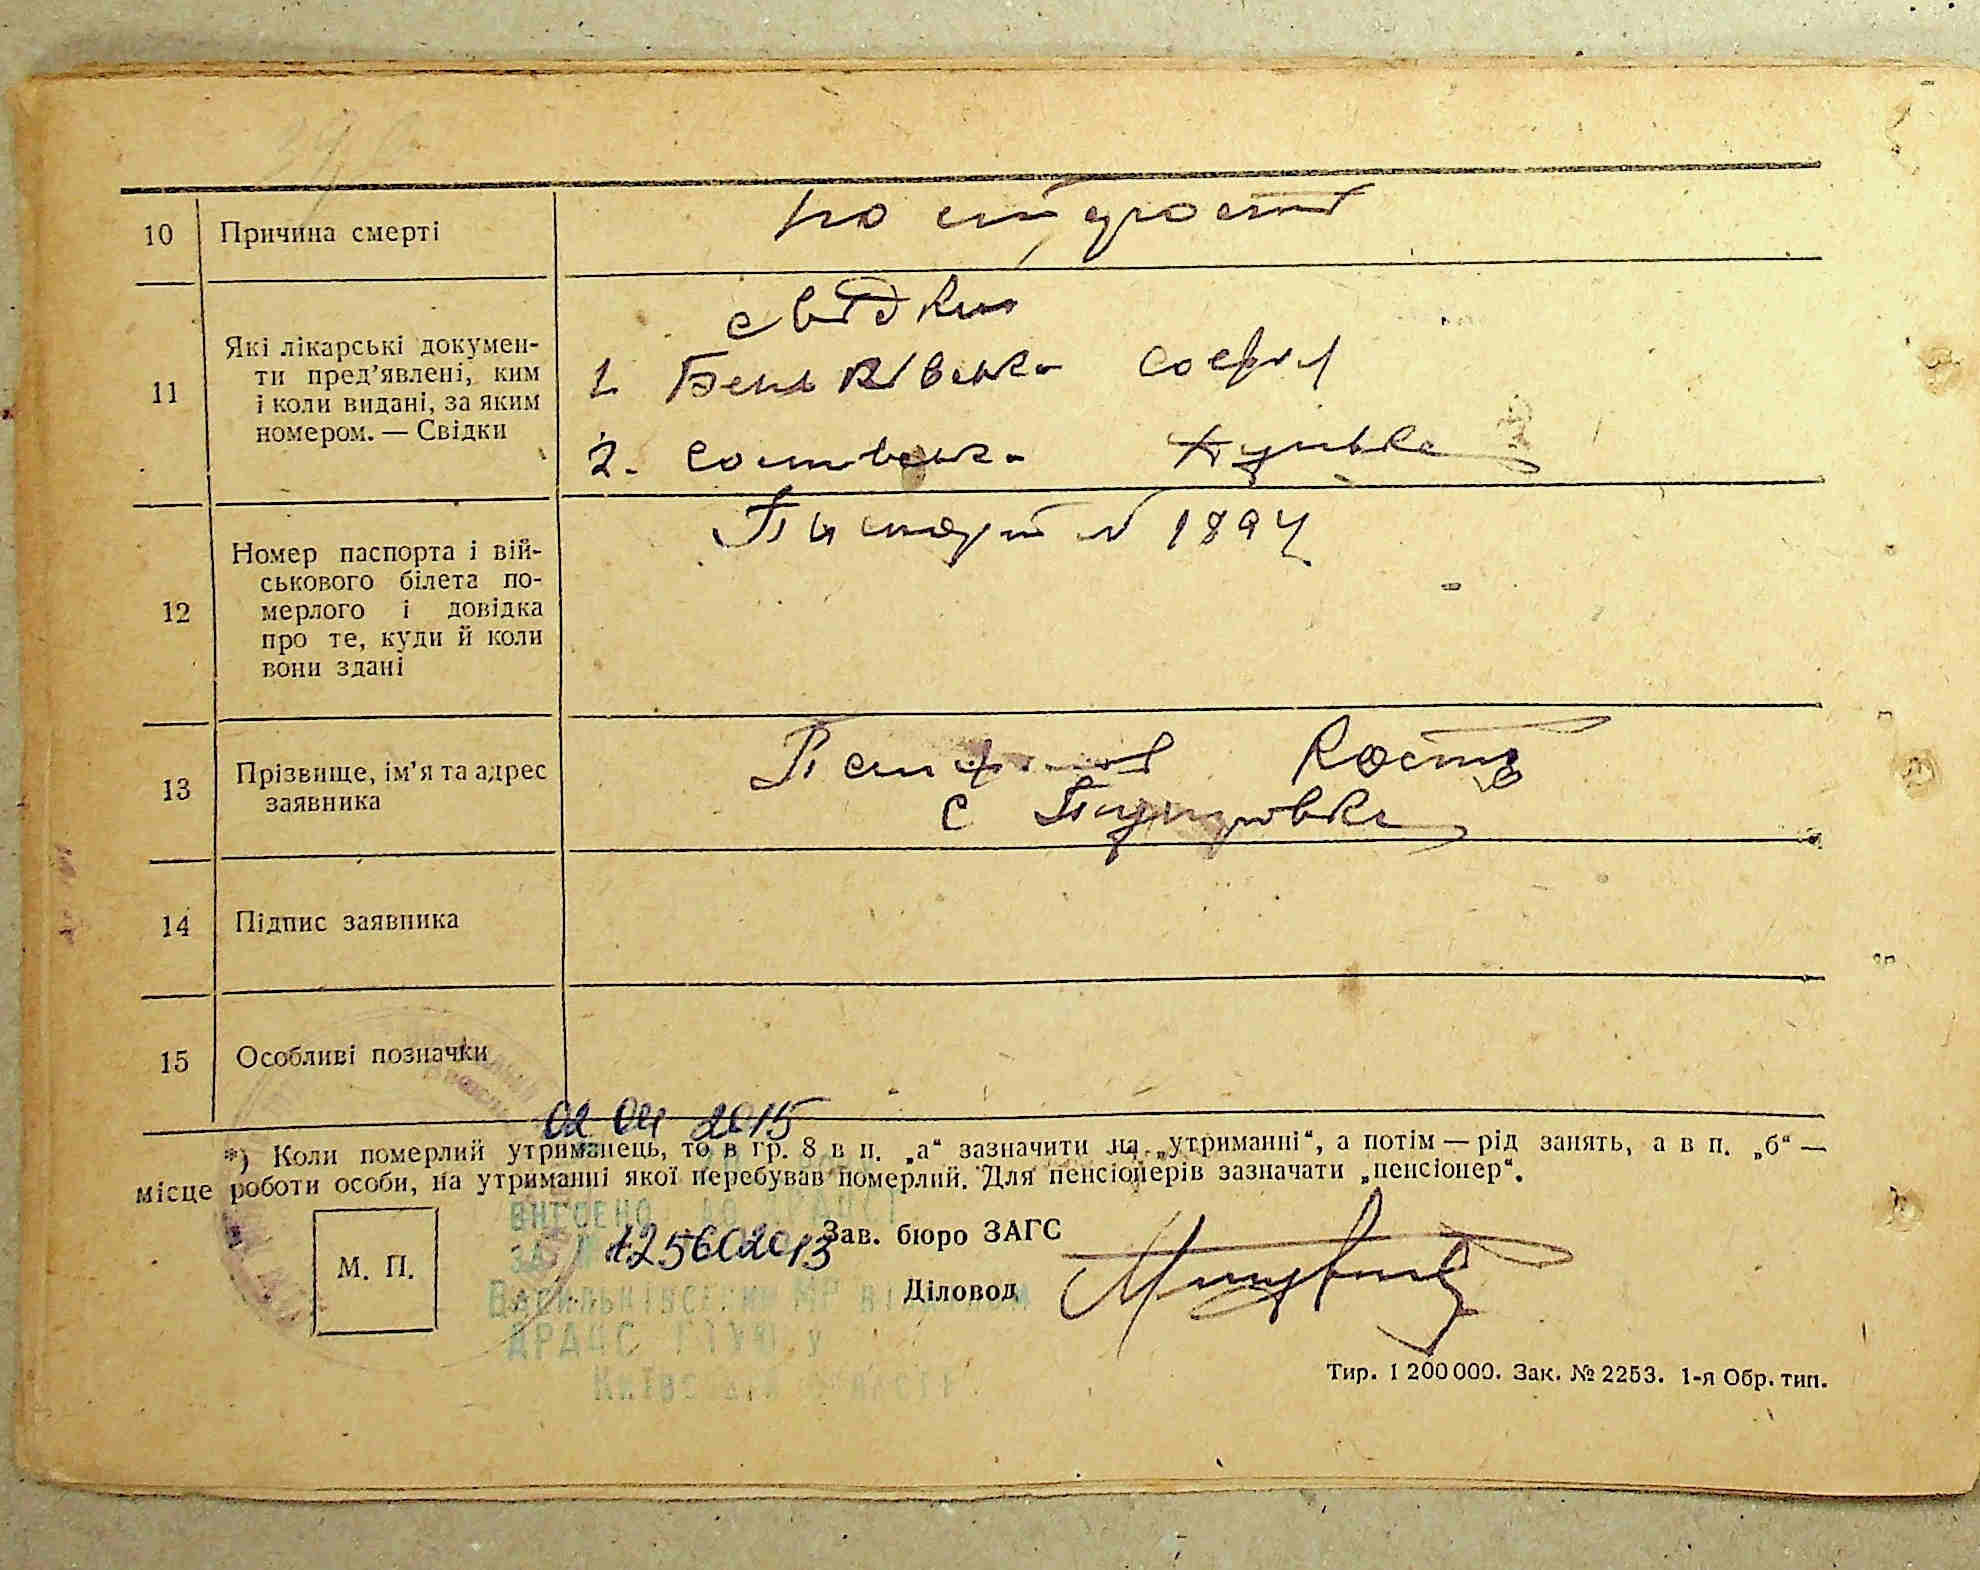 10 Причина смерті по старости
свідки
11 Які лікарські докумен-
ти пред’явлені, ким
і коли видані, за яким
номером. — Свідки
1.
2.
12 Номер паспорта і вій-
ськового білета по-
мерлого і довідка
про те, куди й коли
вони здані
Паспорт № 1894
13 Прізвище, ім’я та адрес
заявника
Кость
с
14 Підпис заявника
15 Особливі позначки
02 04 2015
*) Коли померлий утриманець, то в гр. 8 в п. „а“ зазначити „на утриманні“, а потім — рід занять, а в п. „б“ —
місце роботи особи, на утриманні якої перебував померлий. Для пенсіонерів зазначати „пенсіонер“.
внесено до ДРАЦСГ
за № 125602013
Васильківським МР відділом
ДРАЦС ГТУЮ у
Київській області
М. П.
Зав. бюро ЗАГС
Діловод
Тир. 1 200 000. Зак. № 2253. 1-я Обр. тип.